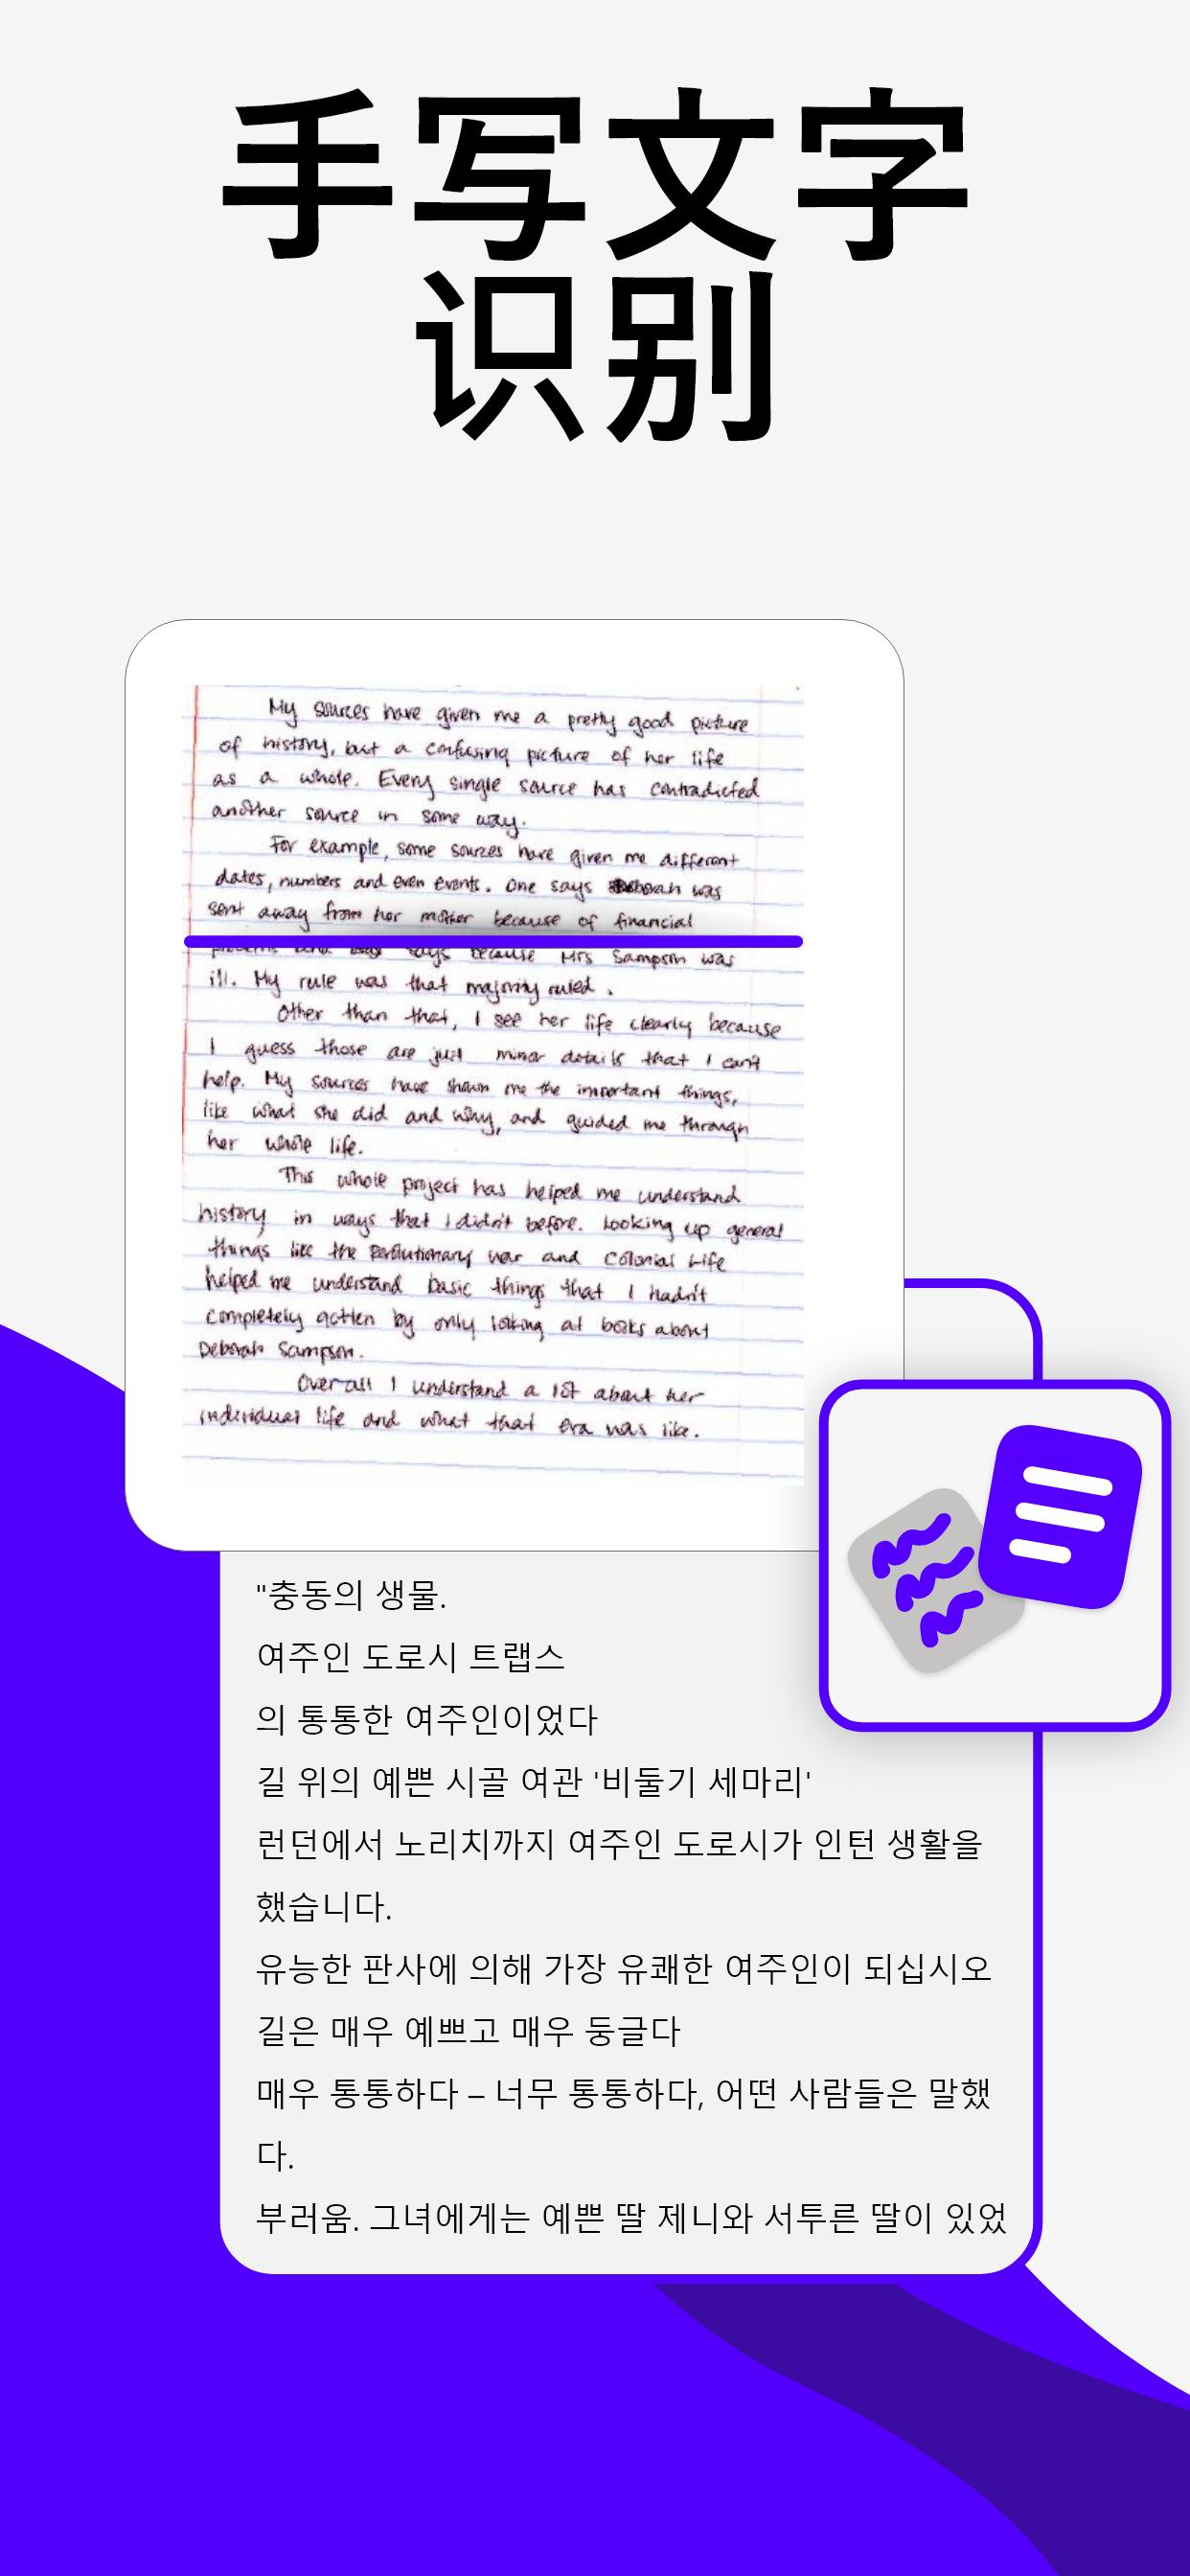 手写文字
识别
My sources have given me a pretty good picture
of history, but a confusing picture of her life
as a whole. Every single source has contradicted
another source in some way.
For example, some sources have given me different
dates, numbers and even events. One says Deborah was
sent away from her mother because of financial
problems and says because Mrs Sampson was
ill. My rule was that majority ruled.
Other than that, I see her life clearly because
I guess those are just minor details that I can't
help. My sources have shown me the important things,
like what she did and why, and guided me through
her whole life.
This whole project has helped me understand
history in ways that I didn't before. Looking up general
things like the Revolutionary war and Colonial Life
helped me understand basic things that I hadn't
completely gotten by only looking at books about
Deborah Sampson.
Overall I understand a lot about her
individual life and what that era was like.
"충동의 생물.
여주인 도로시 트랩스
의 통통한 여주인이었다
길 위의 예쁜 시골 여관 '비둘기 세마리'
런던에서 노리치까지 여주인 도로시가 인턴 생활을
했습니다.
유능한 판사에 의해 가장 유쾌한 여주인이 되십시오
길은 매우 예쁘고 매우 둥글다
매우 통통하다 – 너무 통통하다, 어떤 사람들은 말했
다.
부러움. 그녀에게는 예쁜 딸 제니와 서투른 딸이 있었